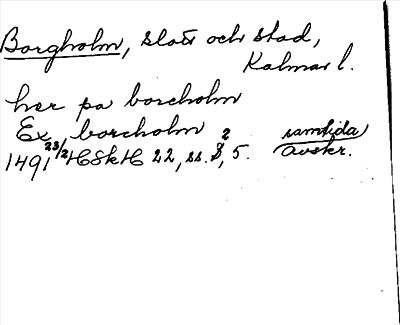 Borgholm, slott och stad,
Kalmar l.
her pa borcholm
Ex. borcholm
samtida
1491 23/2 HSkH 22, ss. 2, 5. avskr.